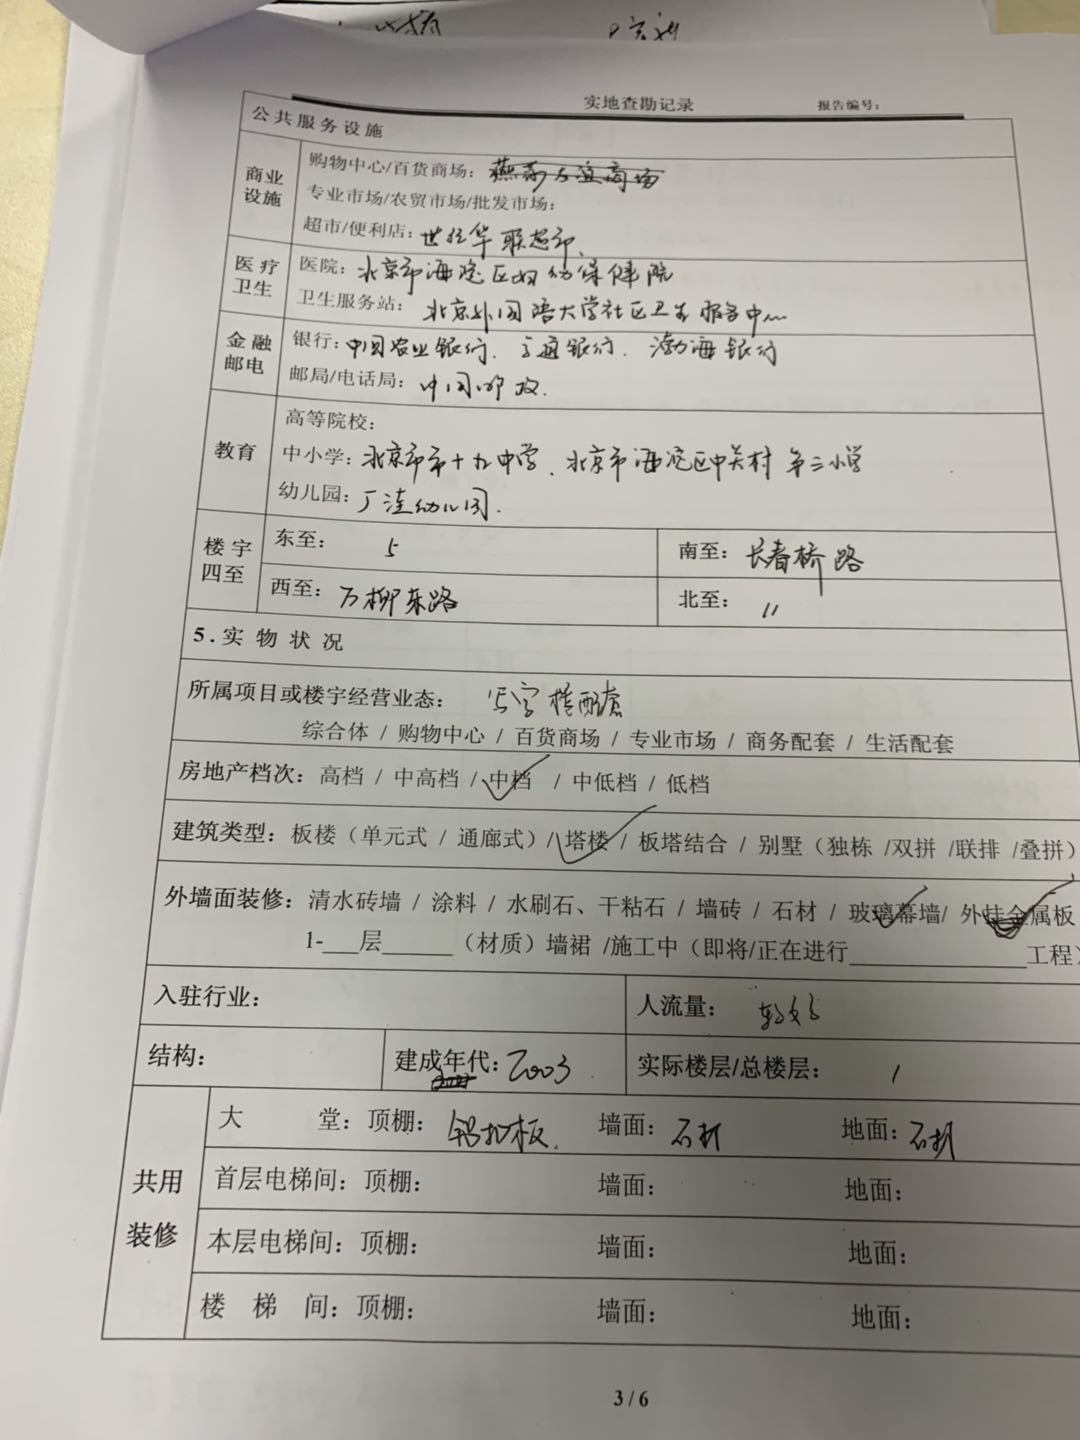 实地查勘记录 报告编号：
公共服务设施
商业设施
购物中心/百货商场：
专业市场/农贸市场/批发市场：
超市/便利店：世纪华联超市
医疗卫生
医院：北京市海淀区妇幼保健院
卫生服务站：北京外国语大学社区卫生服务中心
金融邮电
银行：中国农业银行．交通银行．渤海银行
邮局/电话局：中国邮政．
教育
高等院校：
中小学：北京市十九中学、北京市海淀区中关村第三小学
幼儿园：厂洼幼儿园．
楼宇四至
东至： 南至：长春桥路
西至：万柳东路 北至：
5.实物状况
所属项目或楼宇经营业态：写字楼配套
综合体 / 购物中心 / 百货商场 / 专业市场 / 商务配套 / 生活配套
房地产档次：高档 / 中高档 / 中档 / 中低档 / 低档
建筑类型：板楼（单元式 / 通廊式）/ 塔楼 / 板塔结合 / 别墅（独栋 /双拼 /联排 /叠拼）
外墙面装修：清水砖墙 / 涂料 / 水刷石、干粘石 / 墙砖 / 石材 / 玻璃幕墙/ 外挂金属板
1-___层______（材质）墙裙 /施工中（即将/正在进行_______________工程）
入驻行业： 人流量：较好
结构： 建成年代：2003 实际楼层/总楼层：1
共用装修
大堂：顶棚：铝扣板． 墙面：石材 地面：石材
首层电梯间：顶棚： 墙面： 地面：
本层电梯间：顶棚： 墙面： 地面：
楼梯间：顶棚： 墙面： 地面：
3 / 6